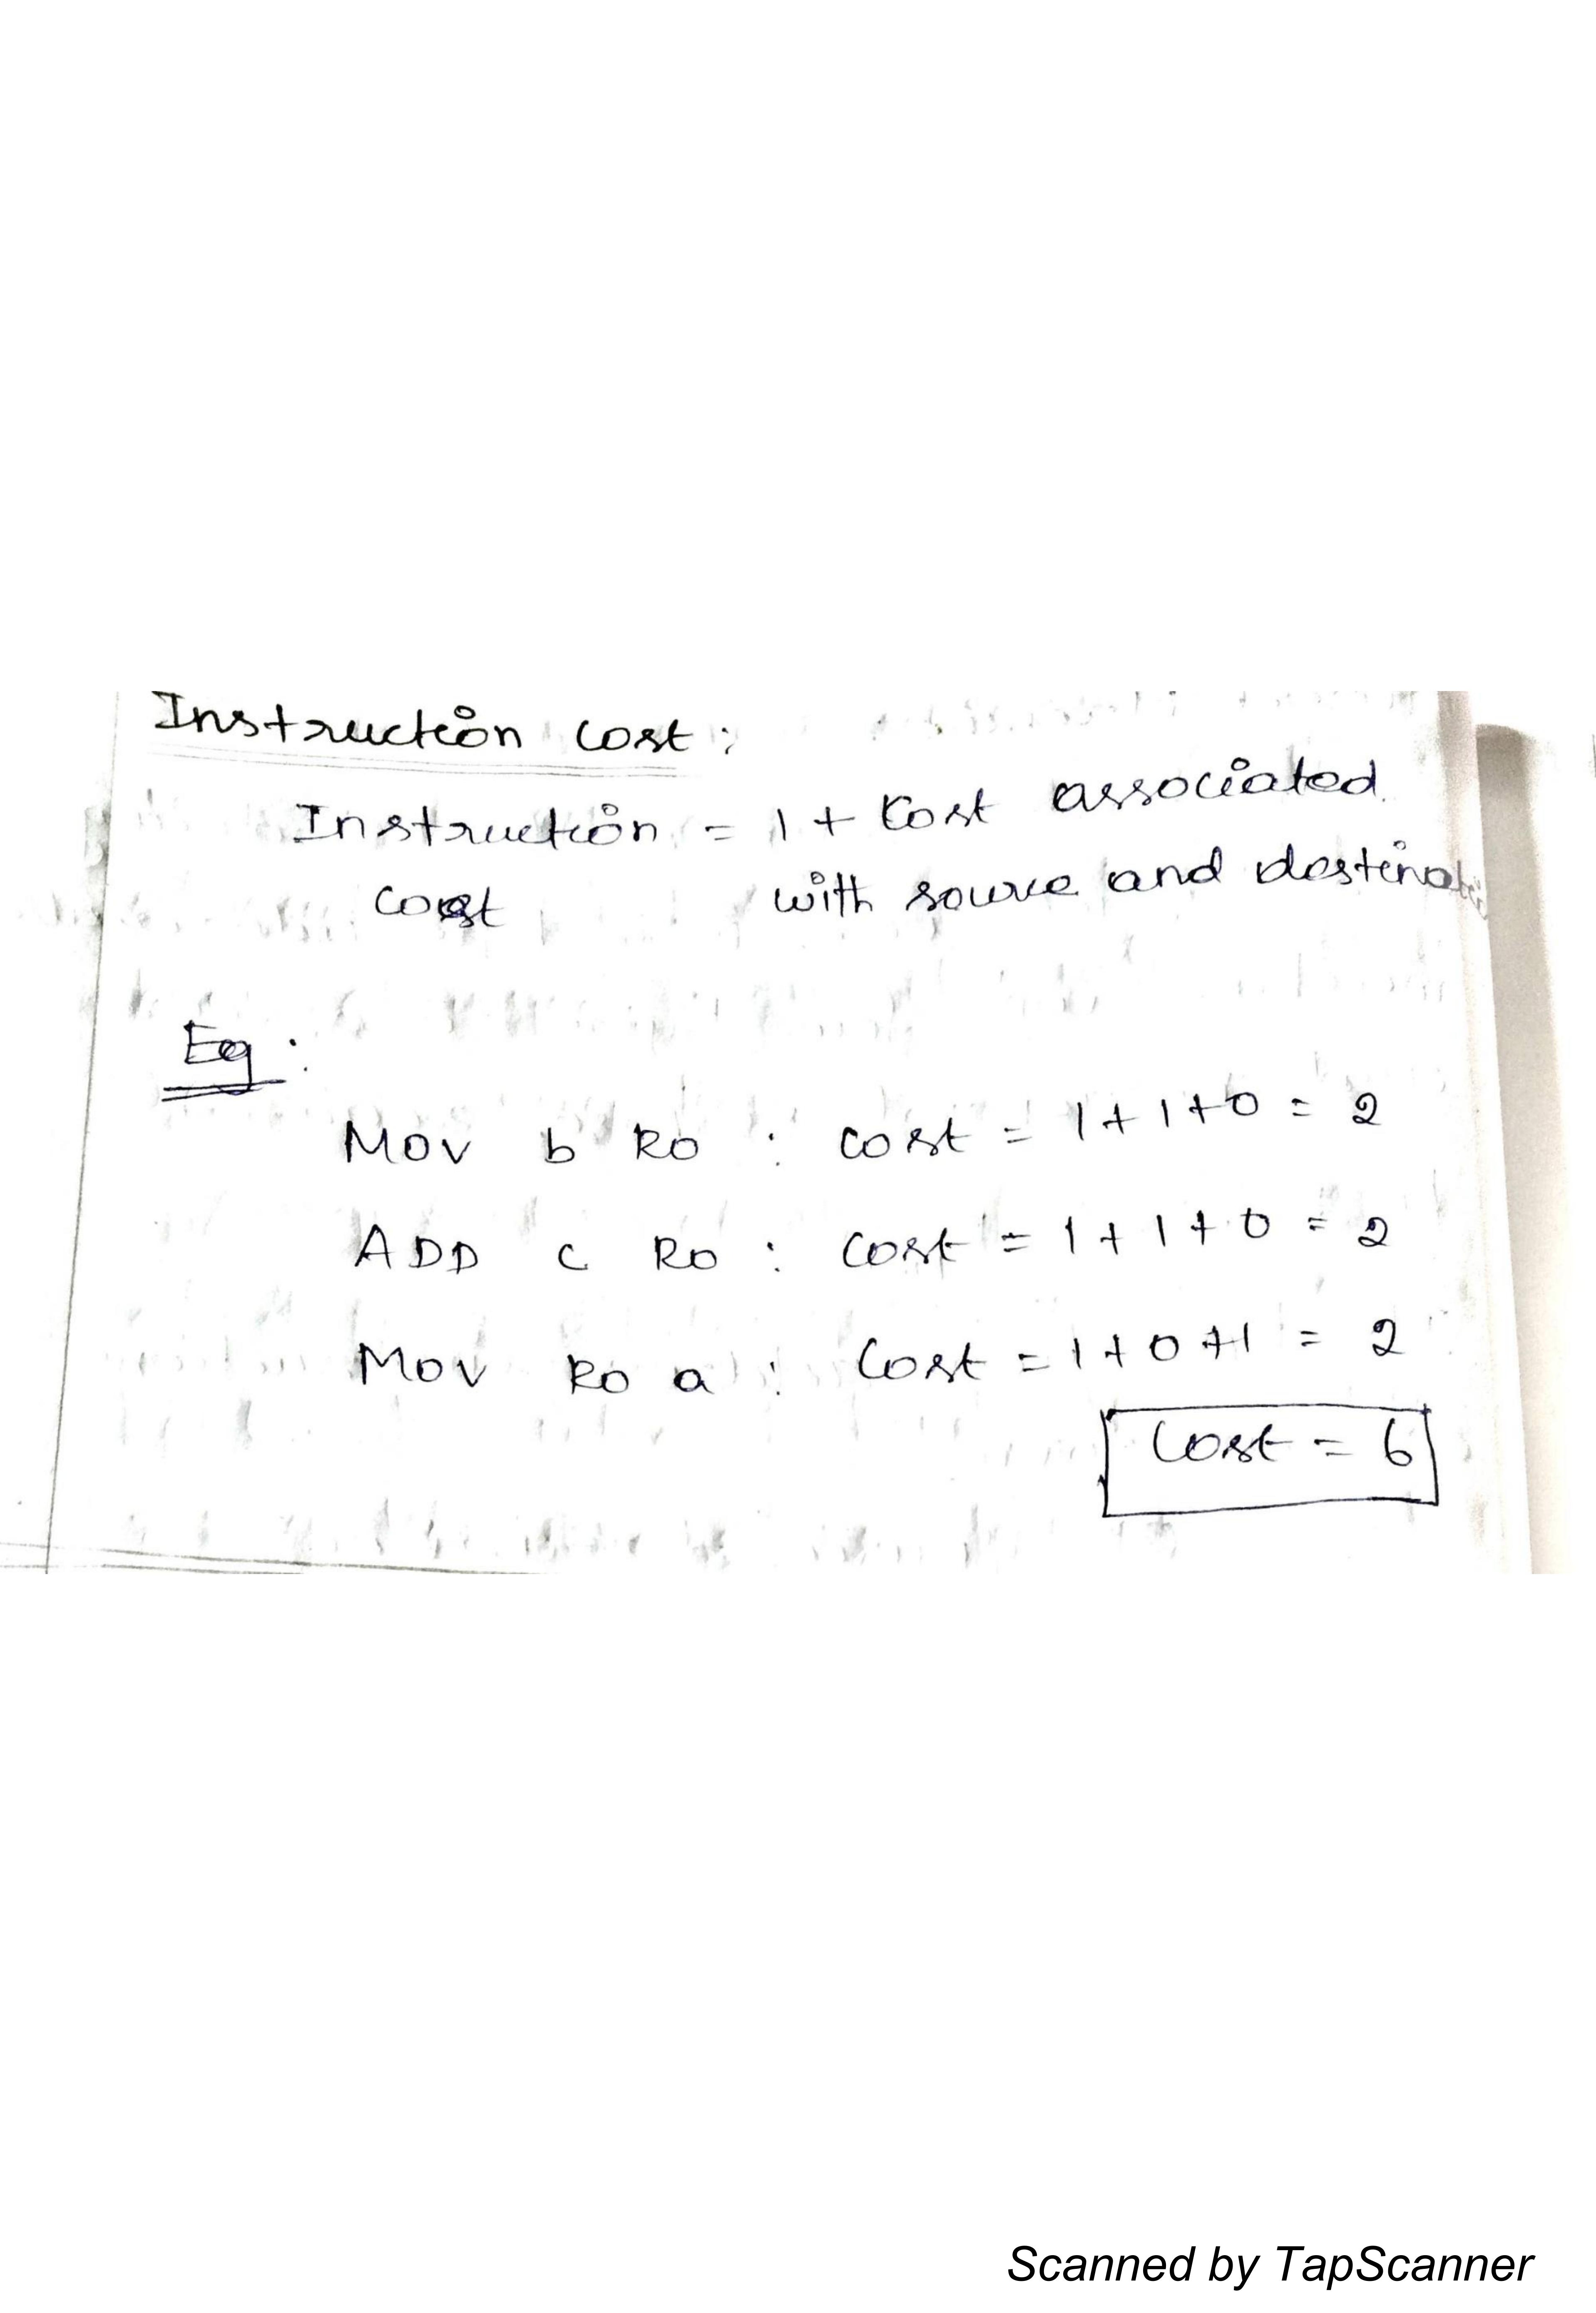 Instruction cost :
Instruction = 1 + Cost associated
cost with source and
Eg :
Mov b R0 : cost = 1 + 1 + 0 = 2
ADD c R0 : cost = 1 + 1 + 0 = 2
Mov R0 a : Cost = 1 + 0 + 1 = 2
Cost = 6
Scanned by TapScanner